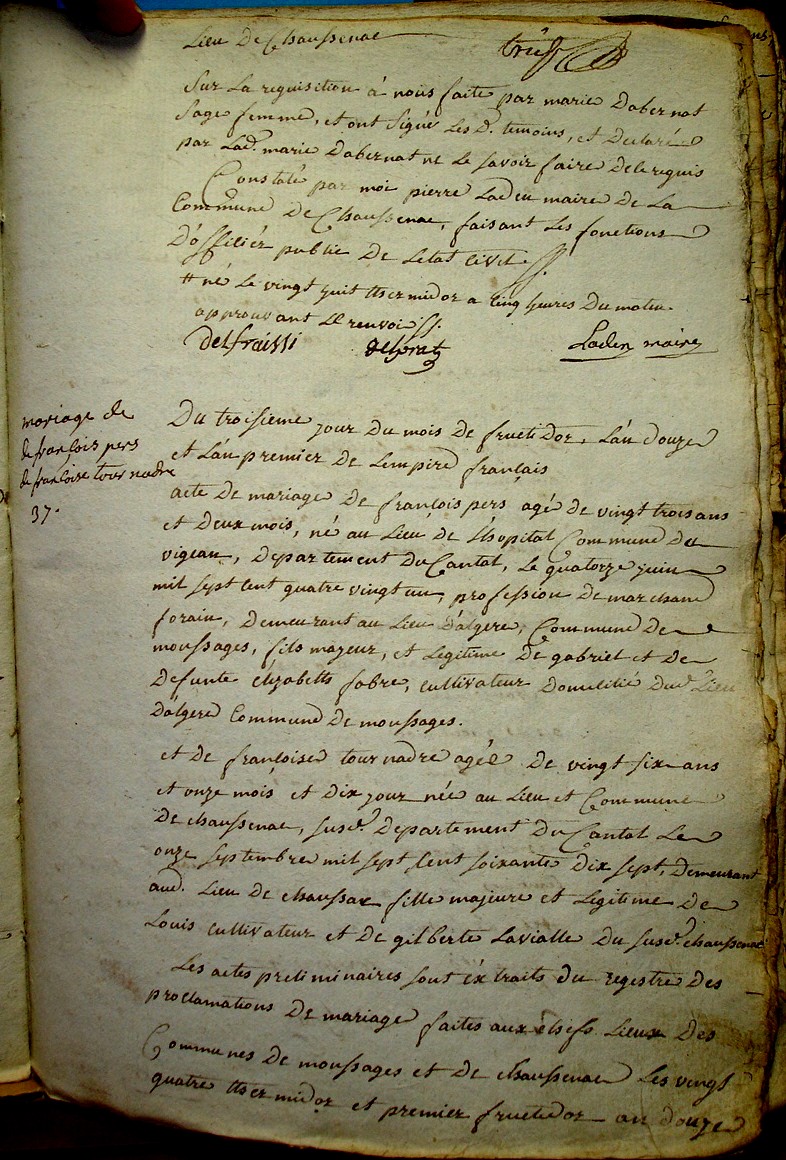 Lieu De Chaussenac
Sur La requisition à nous faite par marie Dabernat
Sage femme, et ont Signé Les D. temoins, et Declaré
par Lad. marie Dabernat ne Le savoir faire De le requis
Constaté par moi pierre Laden maire De La
Commune De Chaussenac, faisant Les fonctions
D'offiliér public De Letat Civil ./.
# né Le vingt huit thermidor a Cinq heures Du matin.
approuvant Le renvoi ./.
Delfraissi Delprat Laden maire
mariage de
de françois pers
de françoise tournadre
37.
Du troisieme jour Du mois De fructidor, L'an Douze
et L'an premier De Lempire français
acte De mariage De françois pers agé De vingt trois ans
et Deux mois, né au Lieu De L'hopital Commune Du
vigean, Departement Du Cantal, Le quatorze juin
mil sept Cent quatre vingt un, profession De marchand
forain, Demeurant au Lieu D'algere, Commune De
moussages, fils majeur, et Legitime De gabriel et De
Defunte élizabetts fabre, Cultivateur Domilitié Dud. Lieu
D'algere Commune De moussages.
et De françoise tournadre agée De vingt six ans
et onze mois et Dix jour née au Lieu et Commune
De chaussenac, susd. Departement Du Cantal Le
onze Septembre mil sept Cent soixante Dix sept, Demeurant
aud. Lieu De chaussac fille majeure et Legitime De
Louis Cultivateur et De gilberte Lavialle Du susd. chaussenac
Les actes preliminaires sont éxtraits Du registre Des
proclamations De mariage faites aux Lieux Des
Communes De moussages et De chaussenac Les vingt
quatre thermidor et premier fructidor an Douze